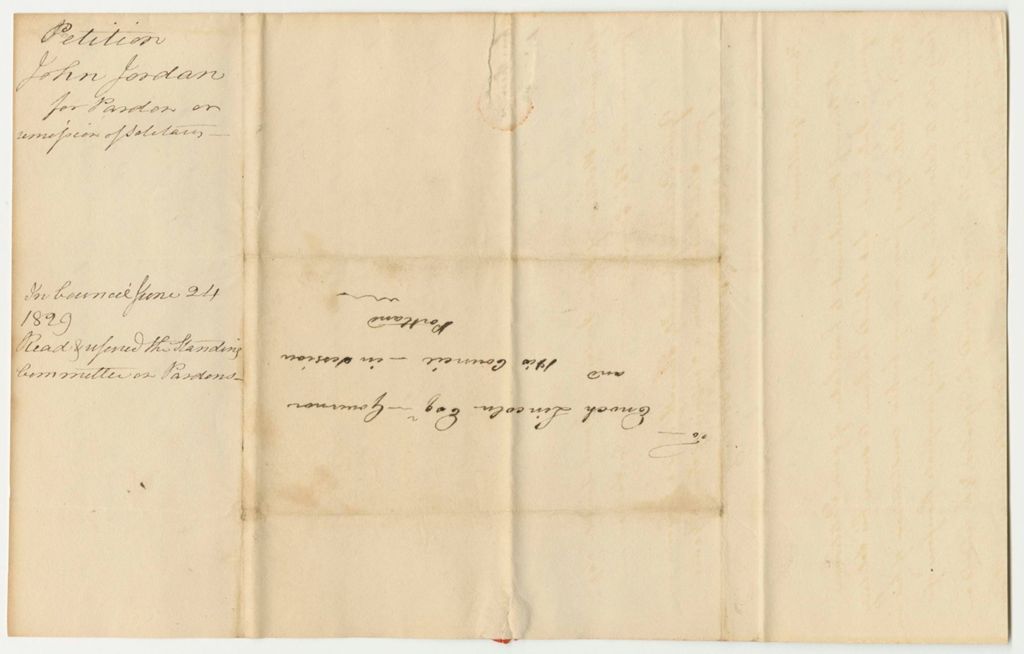 Petition
John Jordan
for Pardon or
remission of Solitary
In Council June 24
1829
Read & referred the Standing
Committee on Pardons
To
Enoch Lincoln Esqr Governor
and
His Council in session
Portland